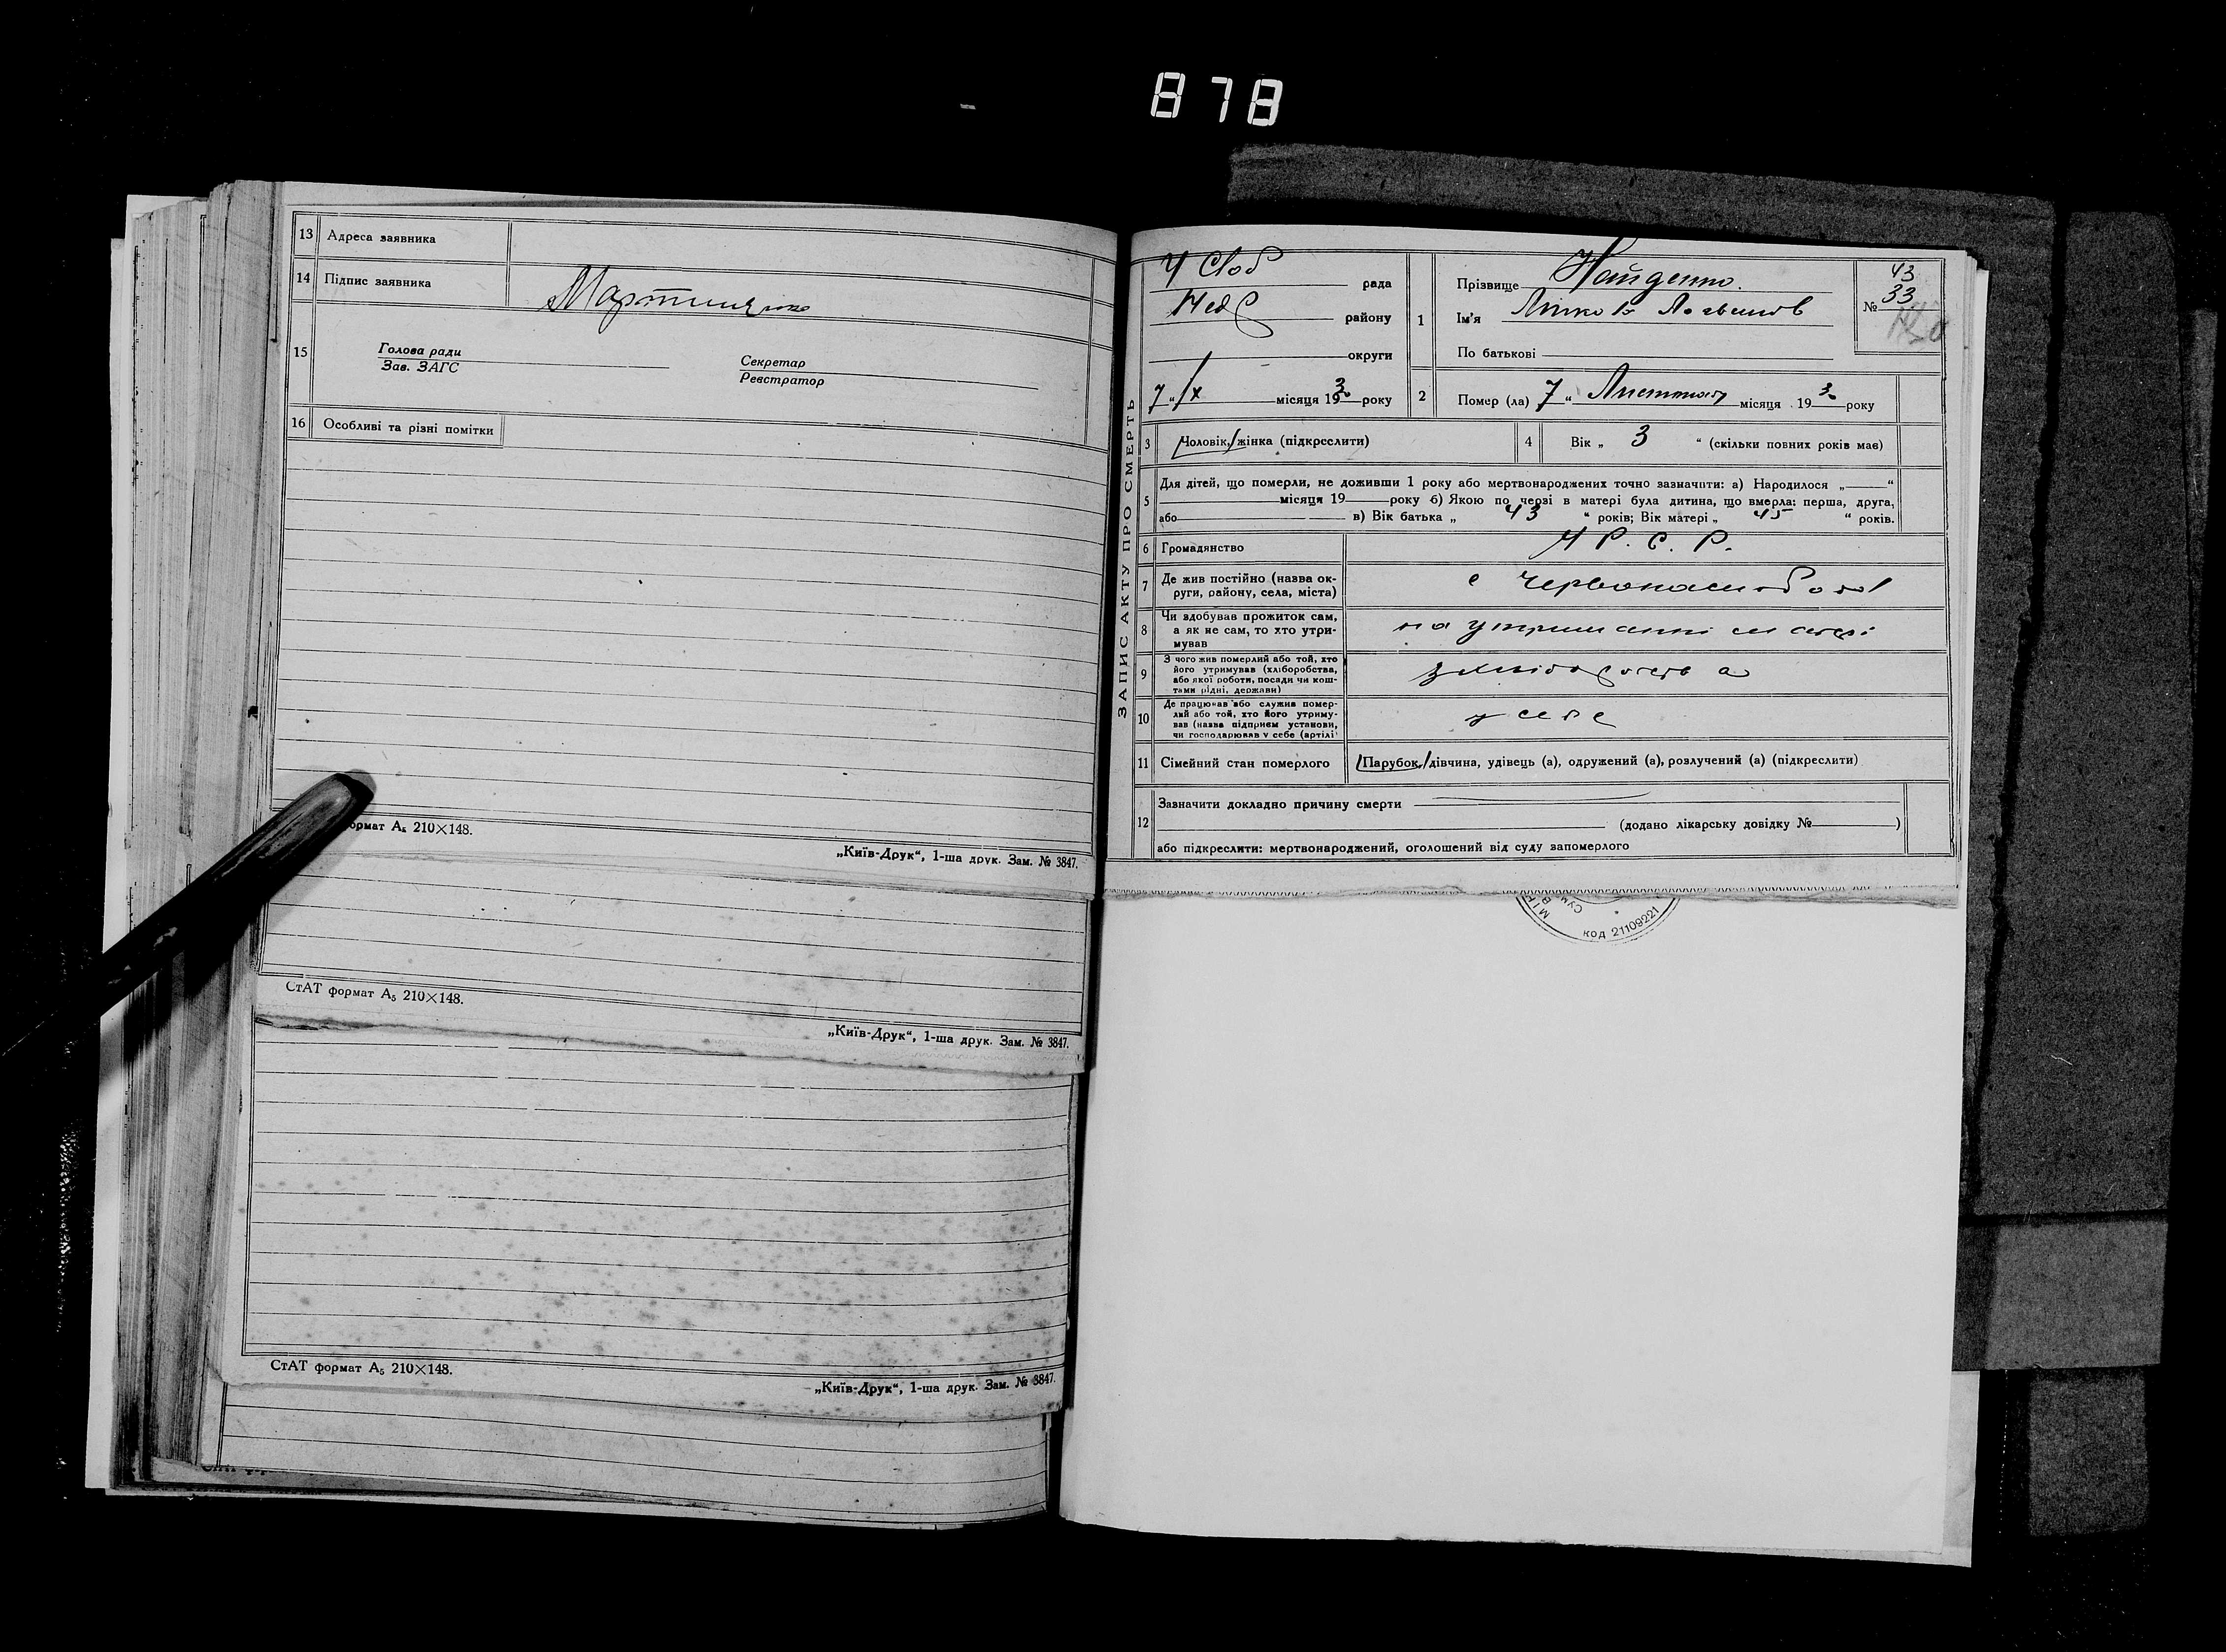 878
13 Адреса заявника
14 Підпис заявника
15 Голова ради
Зав. ЗАГС
Секретар
Реєстратор
16 Особливі та різні помітки
формат А5 210×148.
„Київ-Друк“, 1-ша друк. Зам. № 3847.
СтАТ формат А5 210×148.
„Київ-Друк“, 1-ша друк. Зам. № 3847.
СтАТ формат А5 210×148.
„Київ-Друк“, 1-ша друк. Зам. № 3847.
ЗАПИС АКТУ ПРО СМЕРТЬ
Ч Слоб рада
Нед району
округи
7 „ / X місяця 193 року
1 Прізвище
Ім'я
По батькові
№ 43
33
2 Помер (ла) 7 “ Листопаду місяця 193 року
3 Чоловік, жінка (підкреслити)
4 Вік „ 3 “ (скільки повних років має)
5 Для дітей, що померли, не доживши 1 року або мертвонароджених точно зазначити: а) Народилося „ “
місяця 19 року б) Якою по черзі в матері була дитина, що вмерла: перша, друга,
або в) Вік батька „ 43 “ років; Вік матері „ 45 “ років.
6 Громадянство У Р. С. Р.
7 Де жив постійно (назва ок-
руги, району, села, міста)
с
8 Чи здобував прожиток сам,
а як не сам, то хто утри-
мував
на утриманні матері
9 З чого жив померлий або той, хто
його утримував (хліборобства,
або якої роботи, посади чи кош-
тами рідні, держави)
з хліборобства
10 Де працював або служив помер-
лий або той, хто його утриму-
вав (назва підприєм установи,
чи господарював у себе (артілі)
у себе
11 Сімейний стан померлого Парубок, дівчина, удівець (а), одружений (а), розлучений (а) (підкреслити)
12 Зазначити докладно причину смерти
(додано лікарську довідку № )
або підкреслити: мертвонароджений, оголошений від суду запомерлого
код 21109221